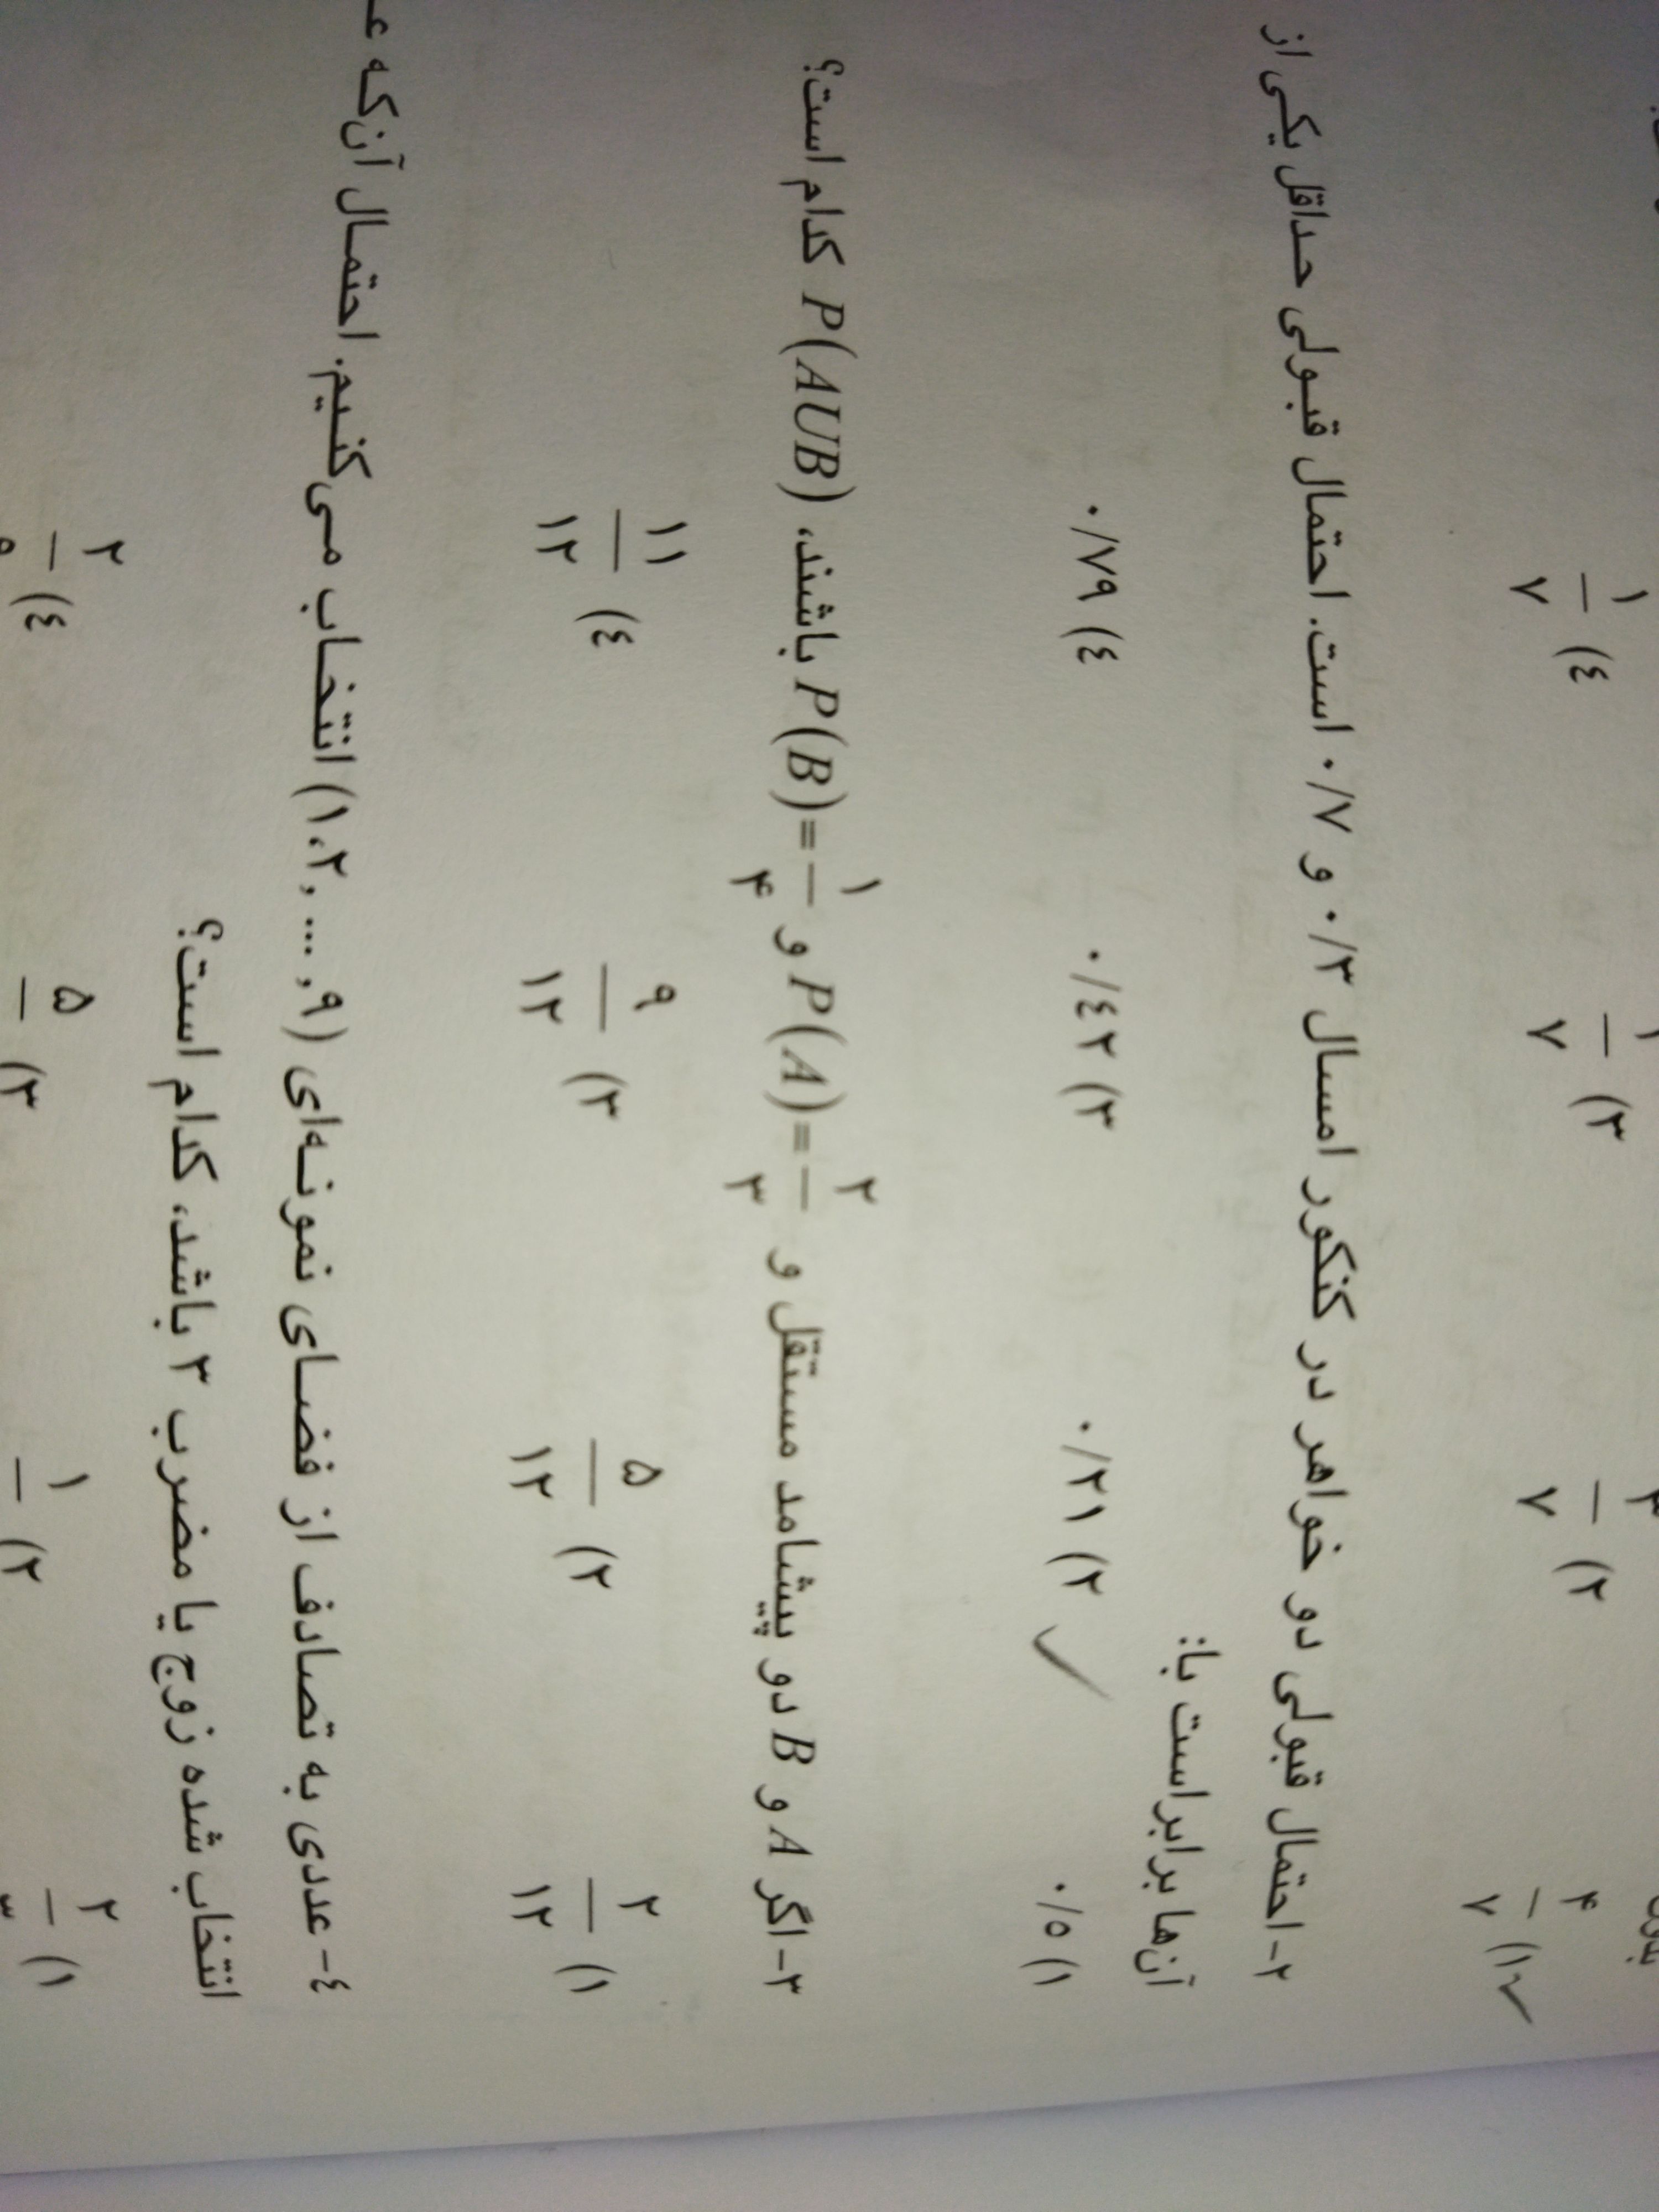 ۱) ۴/۷ ۲) /۷ ۳) ۱/۷ ۴) ۱/۷
۲- احتمال قبولی دو خواهر در کنکور امسال ۰/۳ و ۰/۷ است. احتمال قبولی حداقل یکی از
آن‌ها برابر است با:
۱) ۰/۵ ۲) ۰/۲۱ ۳) ۰/٤۲ ٤) ۰/۷۹
۳- اگر A و B دو پیشامد مستقل و P(A)=۲/۳ و P(B)=۱/۴ باشند، P(AUB) کدام است؟
۱) ۲/۱۲ ۲) ۵/۱۲ ۳) ۹/۱۲ ٤) ۱۱/۱۲
٤- عددی به تصادف از فضای نمونه‌ای (۱،۲, ... ,۹) انتخاب می‌کنیم. احتمال آن‌که
انتخاب شده زوج یا مضرب ۳ باشد، کدام است؟
۱) ۲/۳ ۲) ۱/ ۳) ۵/ ٤) ۲/